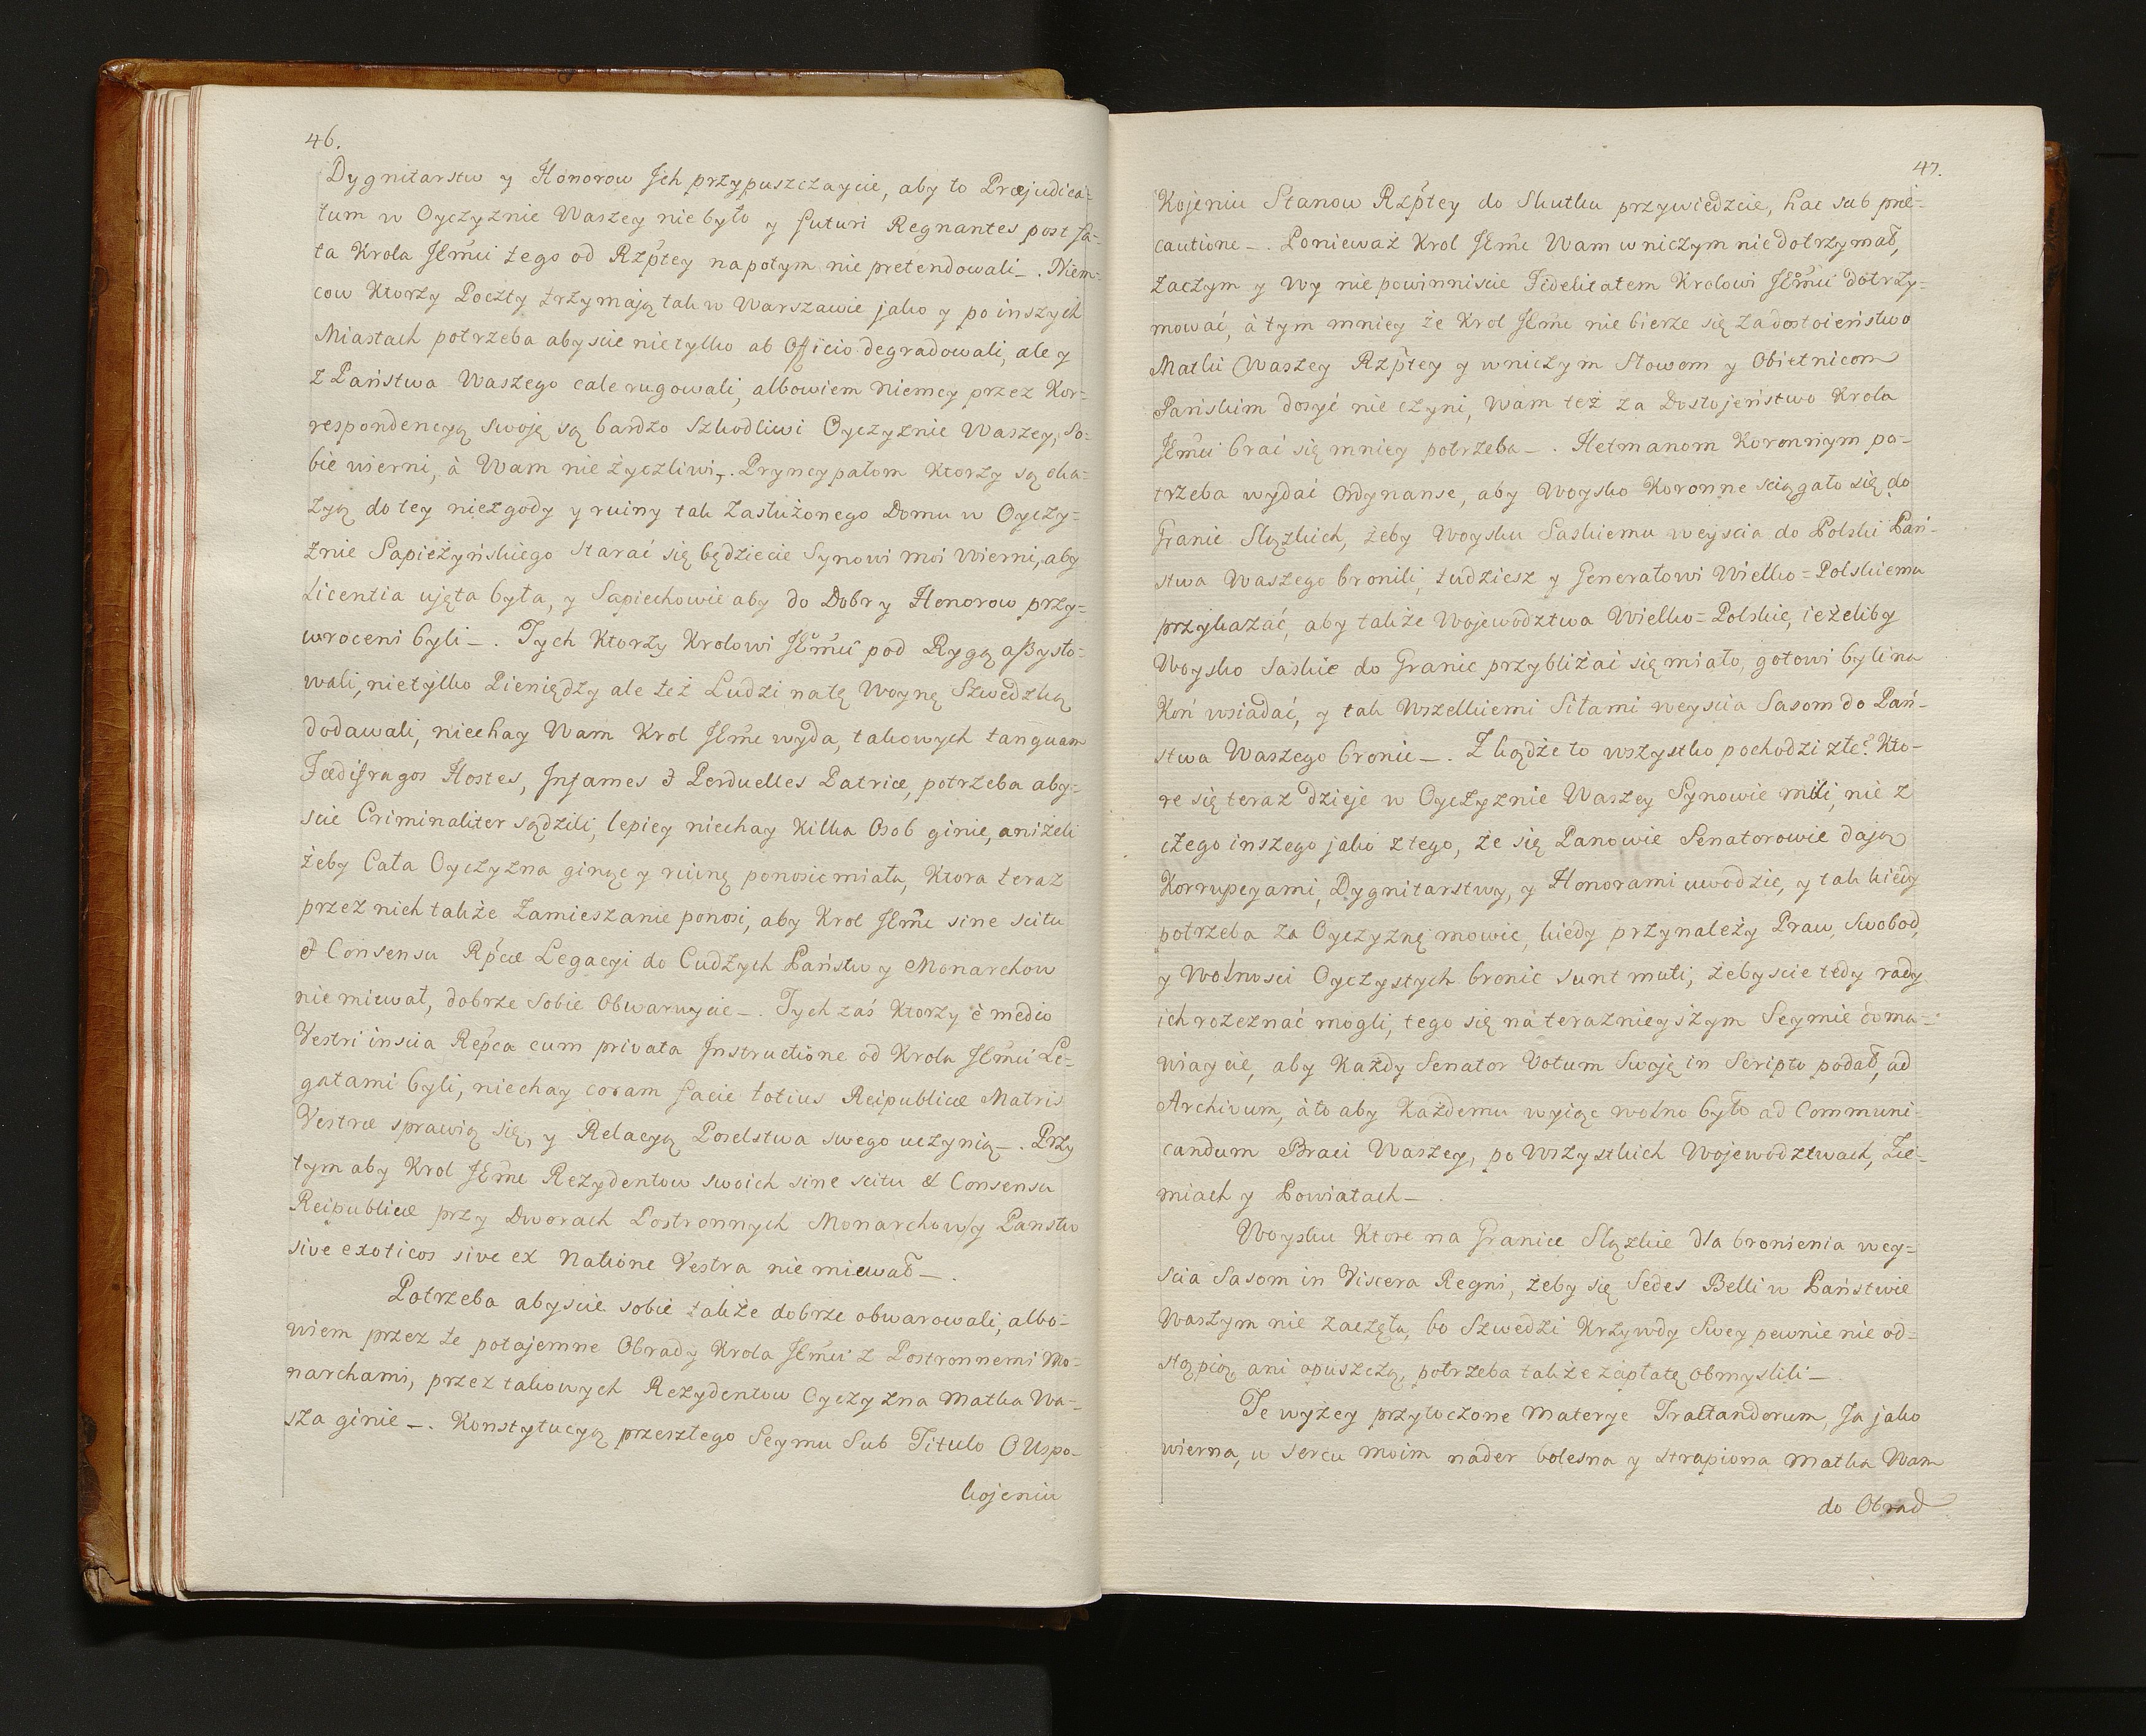 46.
Dygnitarstw y Honorow Jch przypuszczaycie, aby to Præjudica=
tum w Oyczyznie Waszey nie było y futuri Regnantes post fa=
ta Krola JEmći tego od Rzptey napotym nie pretendowali_. Niem=
cow Ktorzy Poczty trzymają tak w Warszawie jako y po inszych
Miastach potrzeba abyscie nietylko ab Officio degradowali, ale y
z Państwa Waszego cale rugowali, albowiem Niemcy przez Kor=
respondencyą swoję są bardzo Szkodliwi Oyczyznie Waszey, So=
bie wierni, à Wam nie życzliwi_. Pryncypałom Ktorzy są oka=
zyą do tey niezgody y ruiny tak Zasłużonego Domu w Oyczy=
znie Sapieżyńskiego starać się będziecie Synowi moi Wierni, aby
Licentia ujęta była, y Sapiechowie aby do Dobr y Honorow przy=
wroceni byli_. Tych Ktorzy Krolowi JEmći pod Rygą aßysto=
wali, nietylko Pieniędzy ale też Ludzi natę Woynę Szwedzką
dodawali, niechay Wam Krol JEmć wyda, takowych tanquam
Fœdifragos Hostes, Jnfames & Perduelles Patriæ, potrzeba aby=
scie Criminaliter sądzili, lepiey niechay Kilka Osob ginie, aniżeli
żeby Cała Oyczyzna ginąc y ruinę ponosic miała, Ktora teraz
przez nich także Zamieszanie ponosi, aby Krol JEmć sine scitu
& Consensu Rpćæ Legacyi do Cudzych Państw y Monarchow
nie miewał, dobrze Sobie Obwaruycie_. Tych zaś Ktorzy è medio
Vestri inscia Repca cum privata Jnstructione od Krola JEmći Le=
gatami byli, niechay coram facie totius Reipublicæ Matris
Vestræ sprawią się, y Relacyą Poselstwa swego uczynią_. Przy
tym aby Krol JEmć Rezydentow swoich sine scitu & Consensu
Reipublicæ przy Dworach Postronnych Monarchow y Panstw
sive exoticos sive ex Natione Vestra nie miewał_.
Potrzeba abyscie sobie także dobrze obwarowali, albo=
wiem przez te potajemne Obrady Krola JEmći z Postronnemi Mo=
narchami, przez takowych Rezydentow Oyczyzna Matka Wa=
sza ginie_. Konstytucyą przeszłego Seymu Sub Titulo O Uspo=
kojeniu
47.
Kojeniu Stanow Rzptey do Skutku przywiedzcie, hac sub præ=
cautione_. Ponieważ Krol JEmć Wam w niczym nie dotrzymał,
zaczym y Wy nie powinniscie Fidelitatem Krolowi JEmći dotrzy=
mować, à tym mniey że Krol JEmć nie bierze się za dostoieństwo
Matki Waszey Rzptey y w niczym Słowom y Obietnicom
Pańskim dosyć nie czyni, Wam też za Dostojeństwo Krola
JEmći brać się mniey potrzeba_. Hetmanom Koronnym po=
trzeba wydać Ordynanse, aby Woysko Koronne sciągało się do
Granic Sląskich, żeby Woysku Saskiemu weyscia do Polski Pań=
stwa Waszego bronili, tudziesz y Generałowi Wielko=Polskiemu
przykazać, aby także Wojewodztwa Wielko=Polskie, ieżeliby
Woysko Saskie do Granic przybliżać się miało, gotowi byli na
Koń wsiadać, y tak Wszelkiemi Siłami weyscia Sasom do Pań=
stwa Waszego bronić_. Zkądże to wszystko pochodzi złe? Kto=
re się teraz dzieje w Oyczyznie Waszey Synowie mili, nie z
czego inszego jako z tego, że się Panowie Senatorowie dają
Korrupcyami, Dygnitarstwy, y Honorami uwodzic, y tak kiedy
potrzeba za Oyczyznę mowic, kiedy przynależy Praw, Swobod,
y Wolnosci Oyczystych bronic sunt muti; żebyscie tedy rady
ich rozeznać mogli, tego się na terazniejszym Seymie doma=
wiaycie, aby Każdy Senator Votum Swoję in Scripto podał, ad
Archivum, à to aby Każdemu wyiąc wolno było ad Communi=
candum Braci Waszey, po Wszystkich Wojewodztwach, Zie=
miach y Powiatach_.
Woysku Ktore na Granice Sląskie dla bronienia wey=
scia Sasom in Viscera Regni, żeby się Sedes Belli w Państwie
Waszym nie zaczęła, bo Szwedzi Krzywdy Swey pewnie nie od=
stąpią, ani opuszczą, potrzeba także zapłatę obmyslili_.
Te wyzey przytoczone Materye Tractandorum, Ja jako
wierna, w sercu moim nader bolesna y strapiona Matka Wam
do Obrad